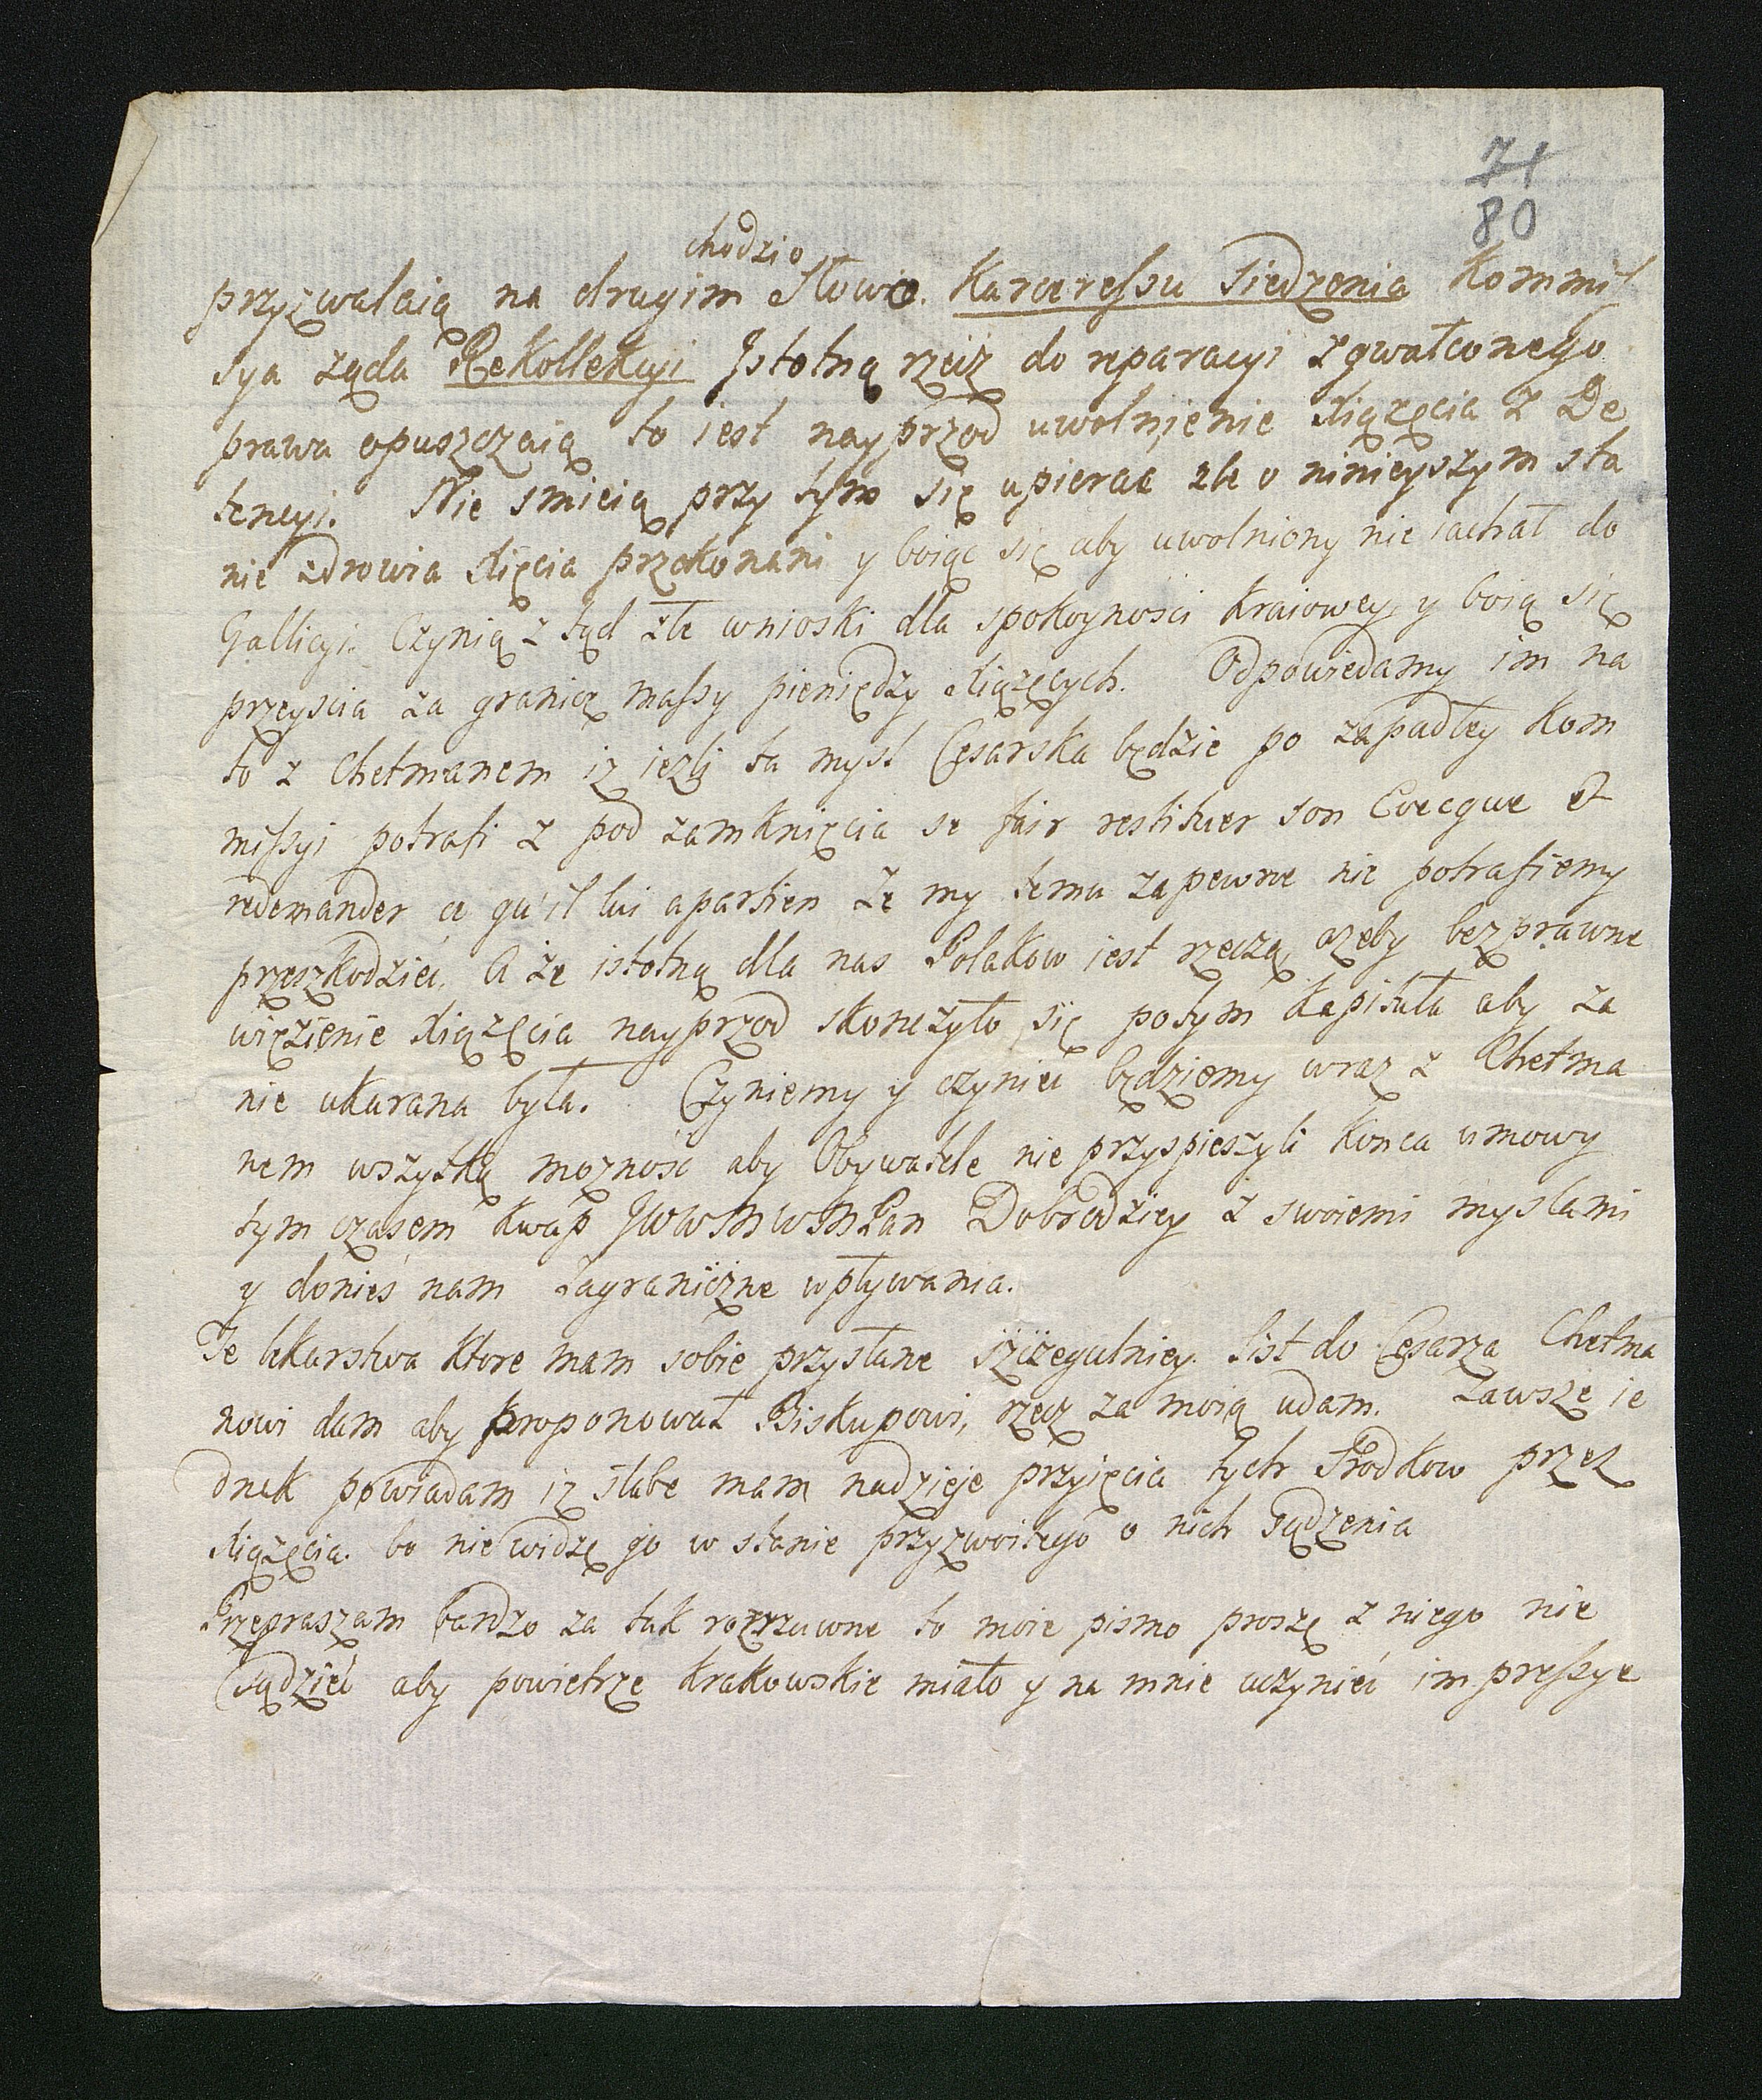 71
80
chodzio
przyzwalaią na drugim słowie. Karceressu siedzenia Kommis
sya ząda Rekollekcyi Jstotną rzecz do reparacyi zgwałconego
prawa opuszczaią to iest nayprzod uwolnienie Xiązęcia z De
tencyi. Nie smieią przy tym się upierać zle o ninieyszym sta
nie zdrowia Xięcia przekonani y boiąc się aby uwolniony nie iachał do
Gallicyi. Czynią z tąd złe wnioski dla spokoyności kraiowey y boią się
przeyscia za granicę massy pieniędzy Xiązęcych. Odpowiedamy im na
to z Chetmanem iz iezli ta mysl Cesarska będzie po zapadłey Kom
missyi potrafi z pod zamknięcia se fair restituer son Evecque et
redemander ce qu'il lui apartien że my temu zapewne nie potrafiemy
przeszkodzieć. A że istotną dla nas Polakow iest rzeczą, azeby bezprawne
więzienie Xiązęcia nayprzod skonczyło się potym kapituła aby za
nie ukarana była. Czyniemy y czynieć będziemy wraz z Chetma
nem wszytką mozność aby Obywatele nie przyspieszyli konca umowy
tym czasem kwap JWWMWMPan Dobrodziey z swoiemi myslami
y donieś nam zagraniczne wpływania.
Te lekarstwa ktore mam sobie przysłane szczegulniey. list do Cesarza Chetma
nowi dam aby proponował Biskupowi, rzecz za moią udam. Zawsze ie
dnak powiadam iz słabe mam nadzieje przyięcia tych Srodkow przez
Xiązęcia. bo nie widzę go w stanie przyzwoitego o nich sądzenia
Przepraszam bardzo za tak rozrzuwne to moie pismo proszę z niego nie
sądzieć aby powietrze krakowskie miało y na mnie uczynieć impressye